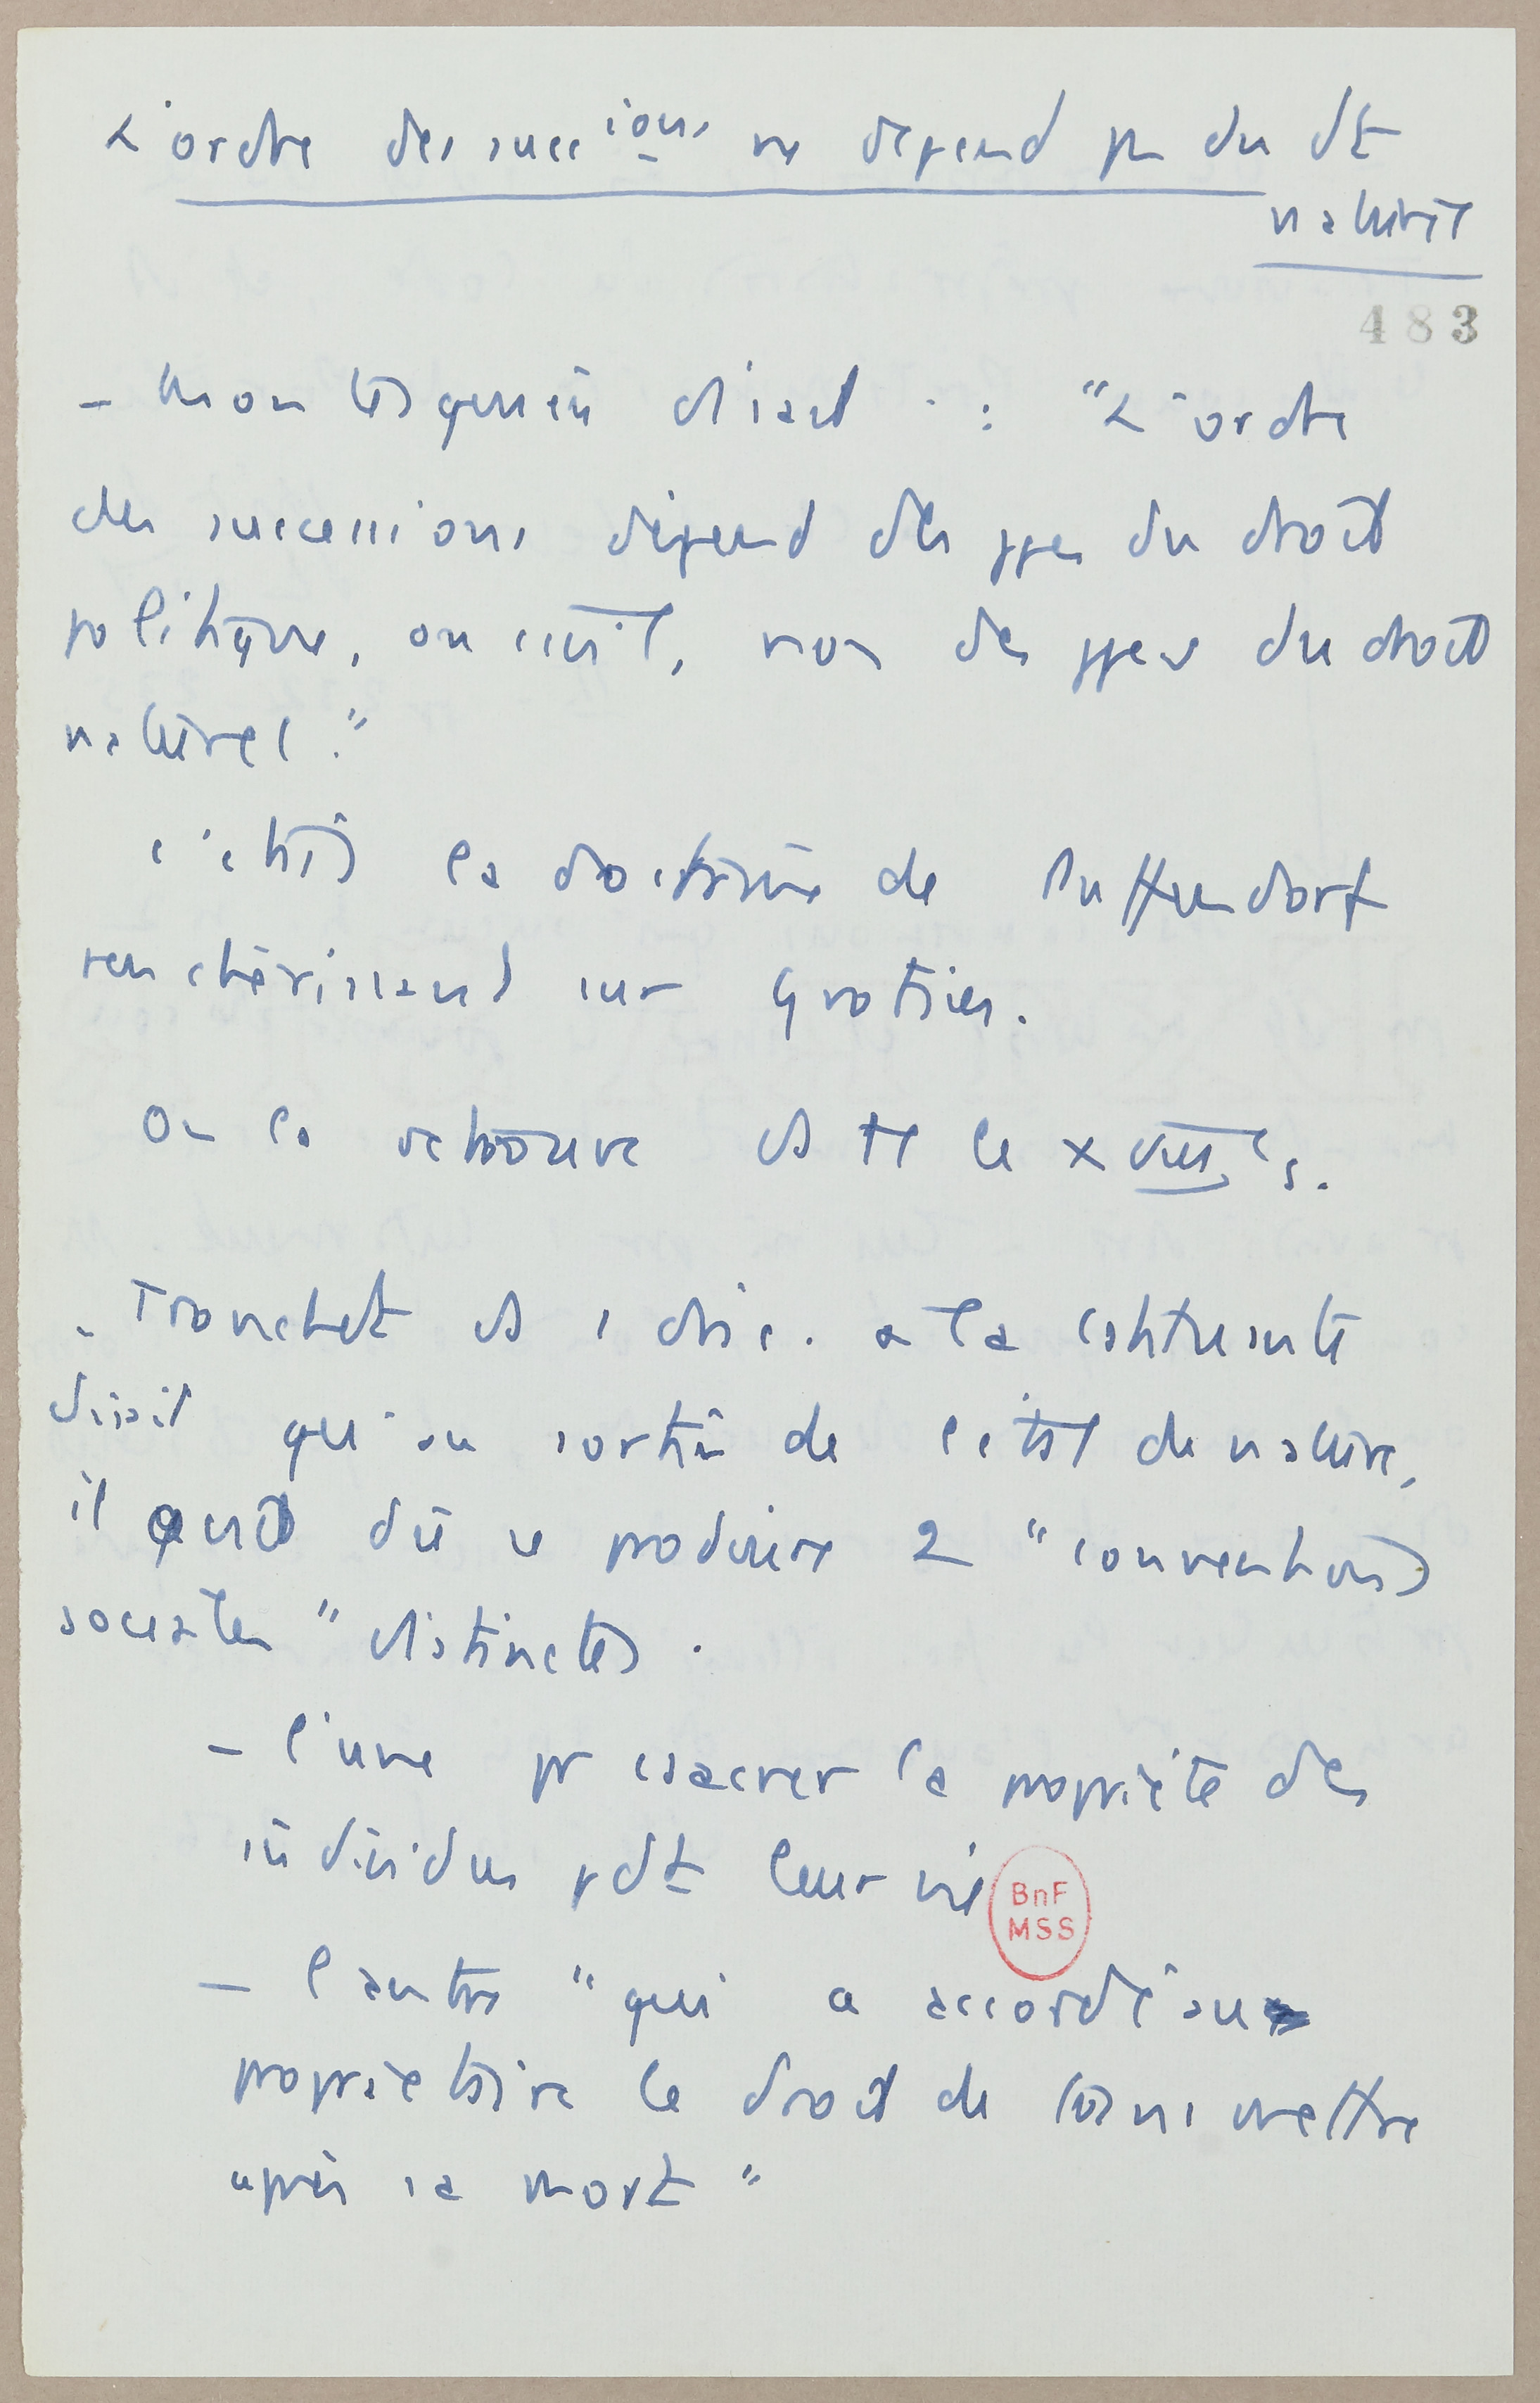 L'ordre des succions ne dépend p du dt
naturel
483
- Montesquieu disait : "L'ordre
des successions dépend des ppes du droit
politique, ou civil, non des ppes du droit
naturel."
c'était la doctrine de Puffendorf
renchérissant sur Grotius.
On la retrouve ds tt le XVIIIe s.
- Tronchet ds 1 disc. a la Constituante
disait qu'au sortir de l'état de nature,
il dû se produire 2 "conventions
sociales" distinctes.
- l'une pr csacrer la propriété des
individus pdt leur vie
BnF
MSS
- l'autre "qui a accordé au
propriétaire le droit de transmettre
après sa mort"